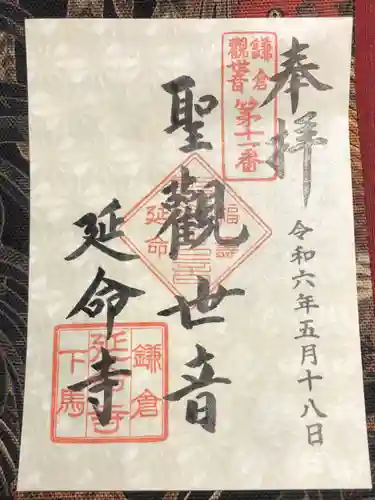 奉拝
令和六年五月十八日
鎌倉
観世音
第十一番
聖觀世音
福
延命
延命寺
鎌倉
延命寺
下馬